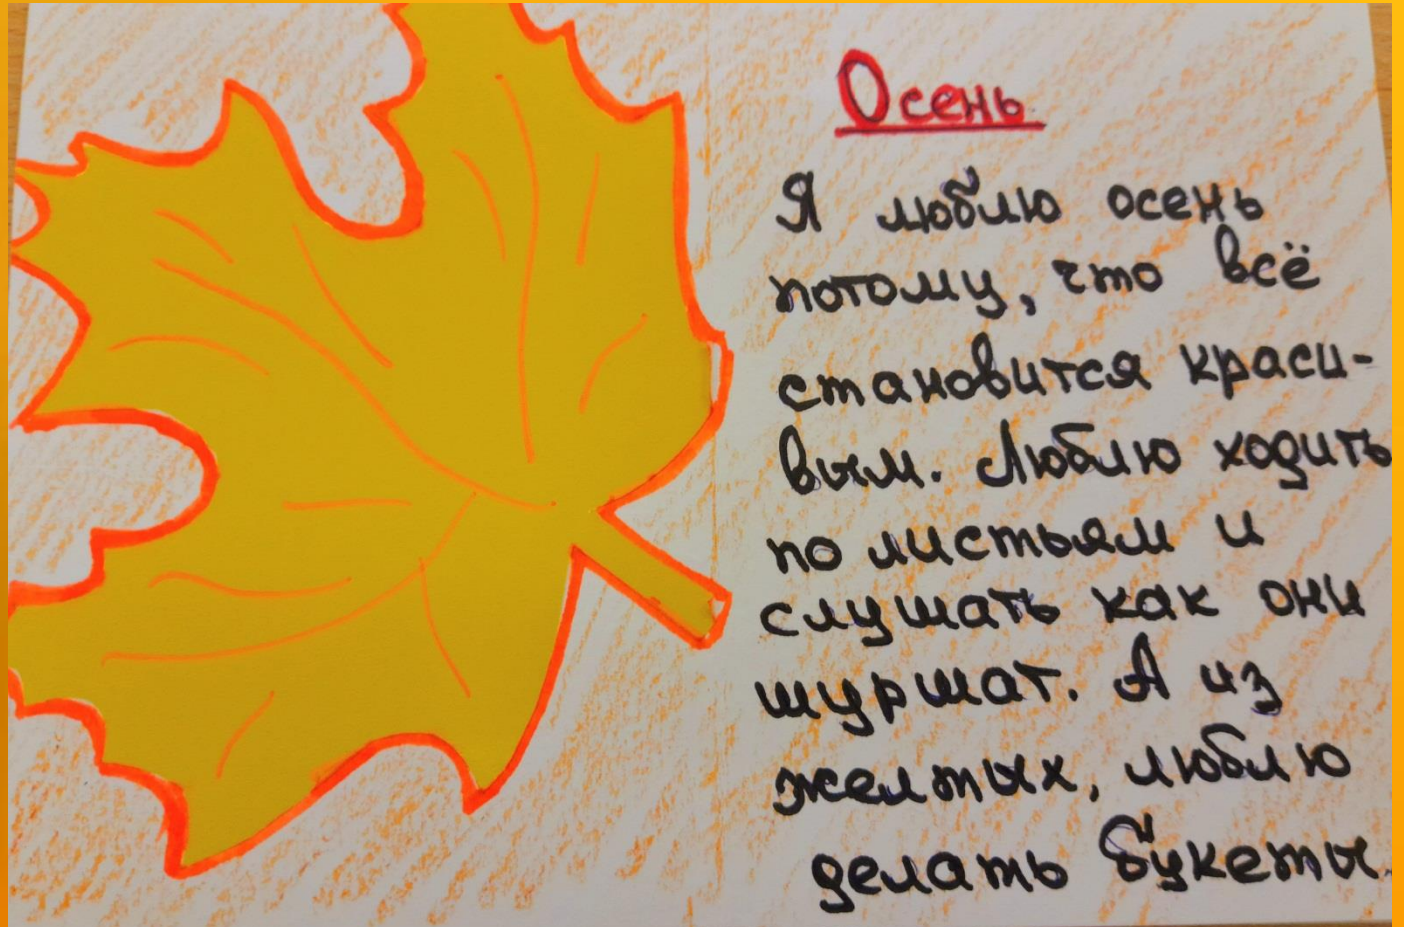 Осень
Я люблю осень
потому, что всё
становится краси-
вым. Люблю ходить
по листьям и
слушать как они
шуршат. А из
желтых, люблю
делать букеты.